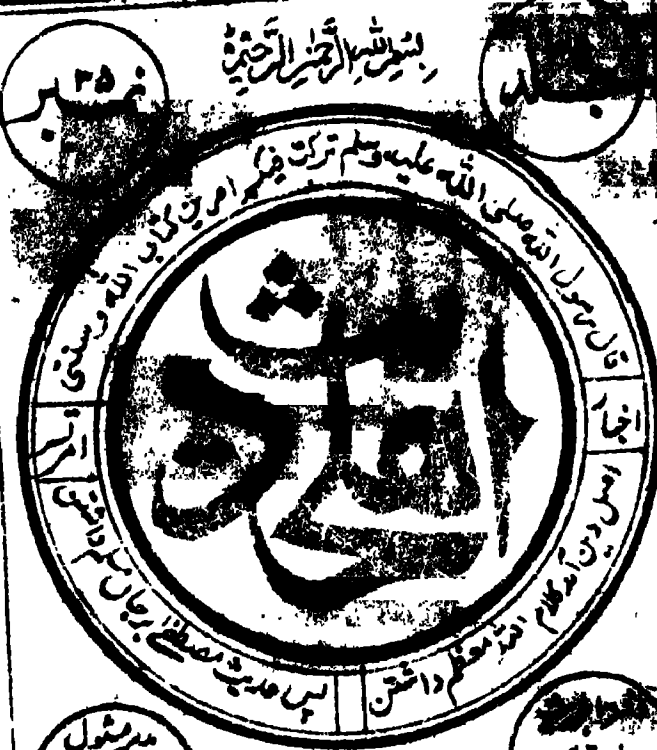 بسم الله الرحمن الرحیم
جلد
نمبر ۳۵
قال رسول الله صلی الله علیه وسلم ترکت فیکم امرین کتاب الله وسنتی
اخبار
اہلحدیث
امرتسر
اصل دین آمد کلام الله معظم داشتن
پس حدیث مصطفےٰ بر جاں مسلم داشتن
مدیر مسئول